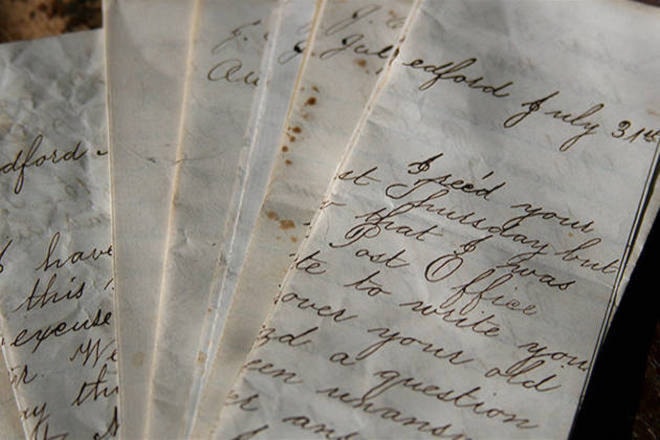 dford
have
this
excuse
r. We
my th
Au
J. Jul
edford July 31st
I rec'd your
st Thursday but
that I was
Post Office
te to write you
over your old
nd a question
een unans
er an